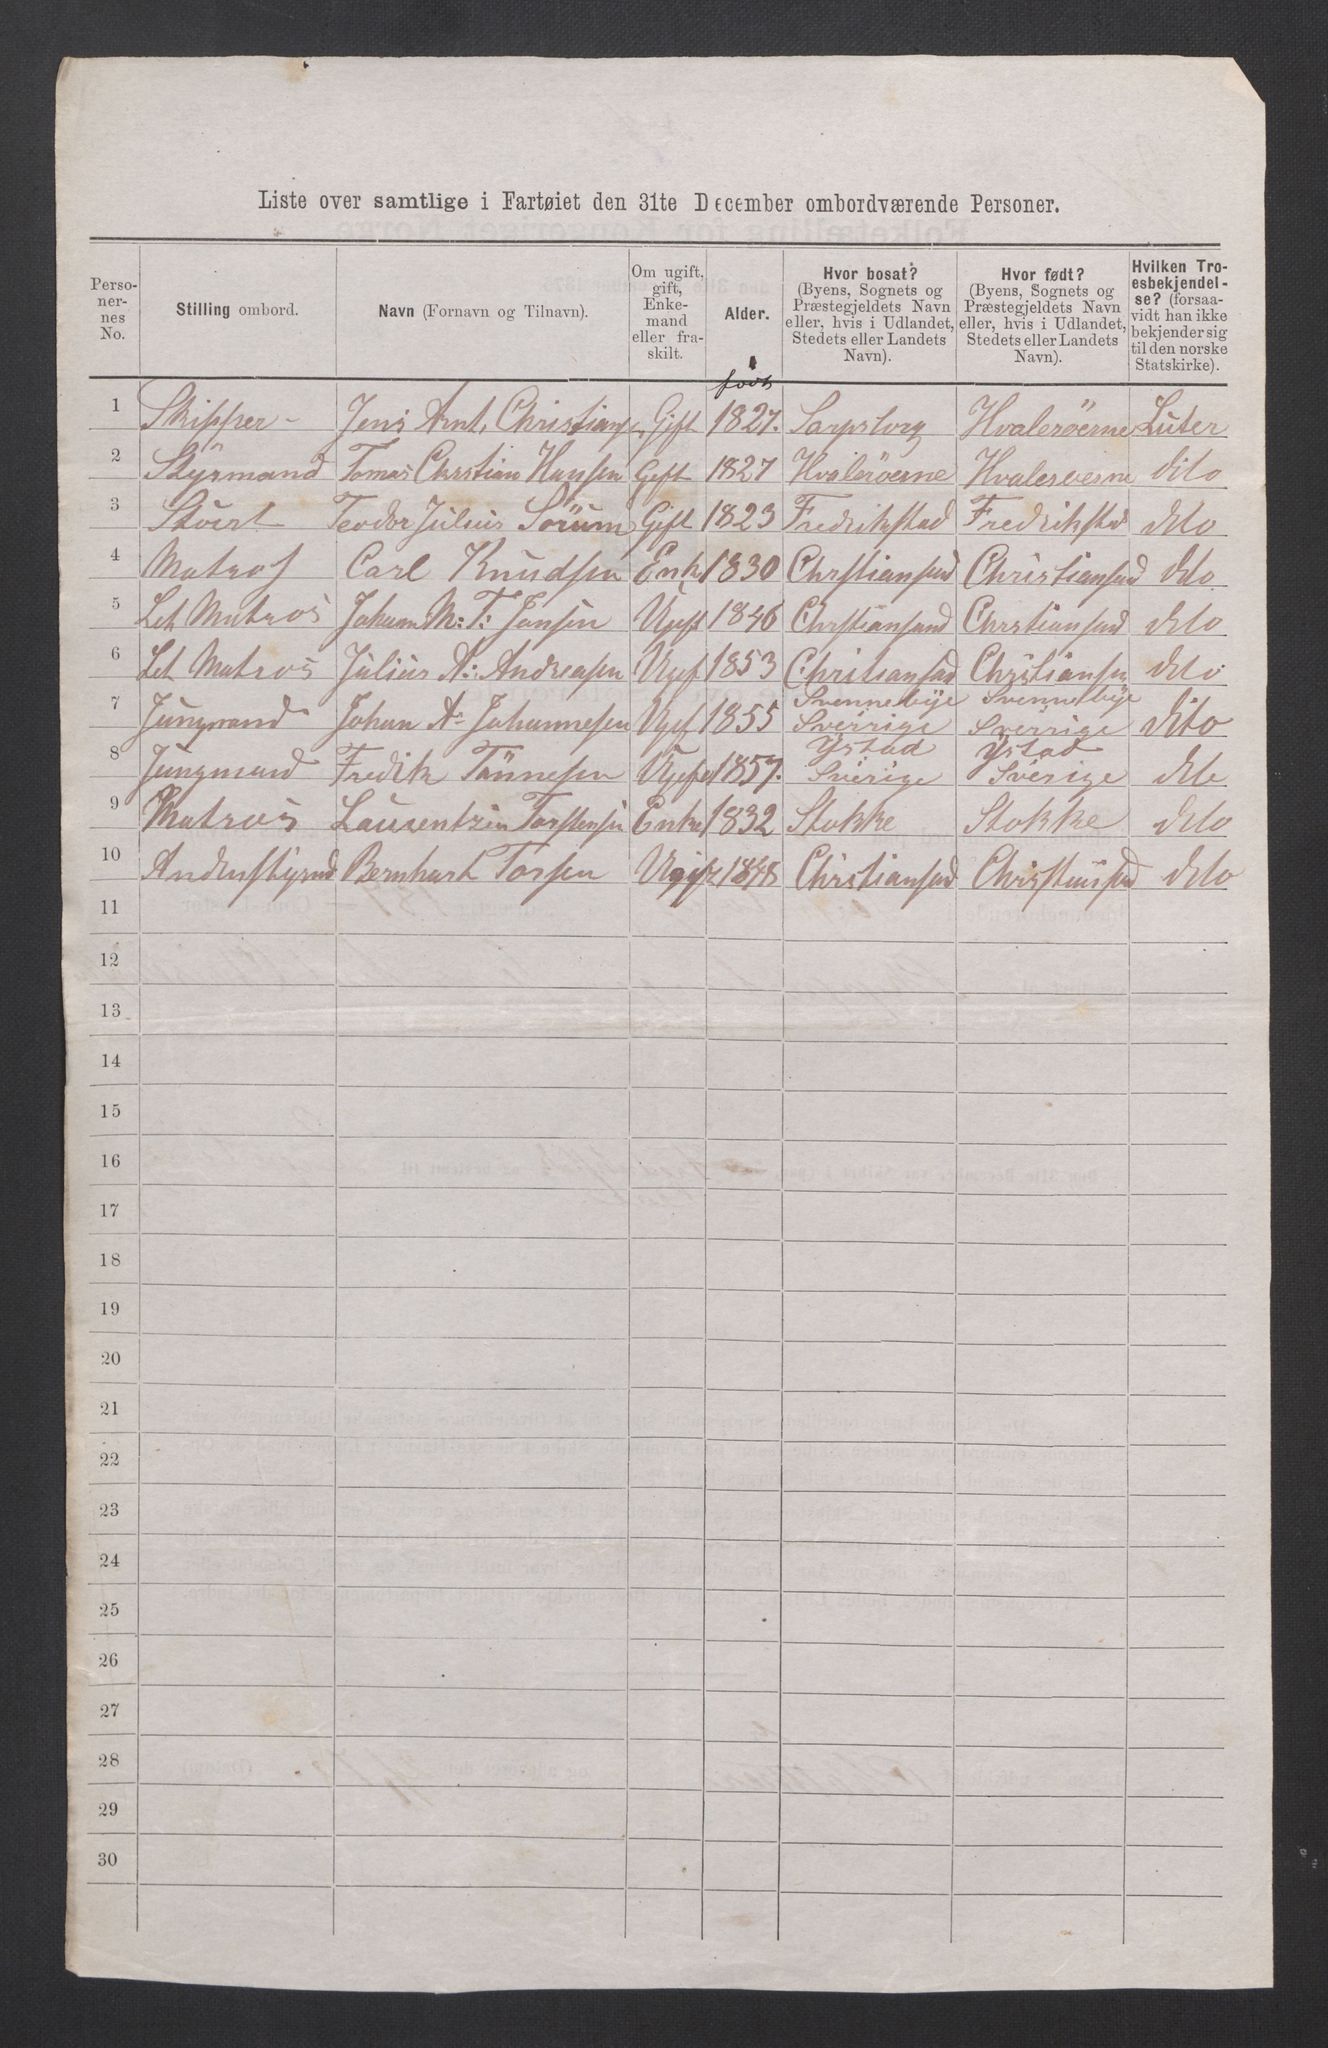 Liste over samtlige i Fartøiet den 31te December ombordværende Personer.
Personernes No. | Stilling ombord. | Navn (Fornavn og Tilnavn). | Om ugift, gift, Enkemand eller fraskilt. | Alder. | Hvor bosat? (Byens, Sognets og Præstegjeldets Navn eller, hvis i Udlandet, Stedets eller Landets Navn). | Hvor født? (Byens, Sognets og Præstegjeldets Navn eller, hvis i Udlandet, Stedets eller Landets Navn). | Hvilken Troesbekjendelse? (forsaavidt han ikke bekjender sig til den norske Statskirke).
født
1 Skipper - Jens Arnt. Christians Gift 1827. Sarpsborg Hvalerøerne Luter
2 Styrmand Tomas Chrstian Hansen Gift 1827 Hvalerøerne Hvalerøerne dito
3 Stuert Teodor Julius Sørum Gift 1823 Fredrikstad Fredrikstad dito
4 Matros Carl Knudsen Enk 1830 Chrstiansand Christiansand dito
5 Let Matros Johan M: T: Jansen Ugift 1846 Chrstiansand Chrstiansand dito
6 Let Matros Julius A: Andreasen Ugif 1853 Christiansand Christiansan dito
7 Jungmand Johan A: Johannesen Ugif 1855 Svennebÿe Sverrige Svennebÿe Sverrige dito
8 Jungmand Fredik Tönnesen Ugift 1857. Ystad Sverige Ystad Sverige dito
9 Matros Laurentzin Torstensen Enke 1832 Stokke Stokke dito
10 Andenstyrmd Bernhart Torsen Ugift 1848 Christiansad Christiansad dito
11
12
13
14
15
16
17
18
19
20
21
22
23
24
25
26
27
28
29
30